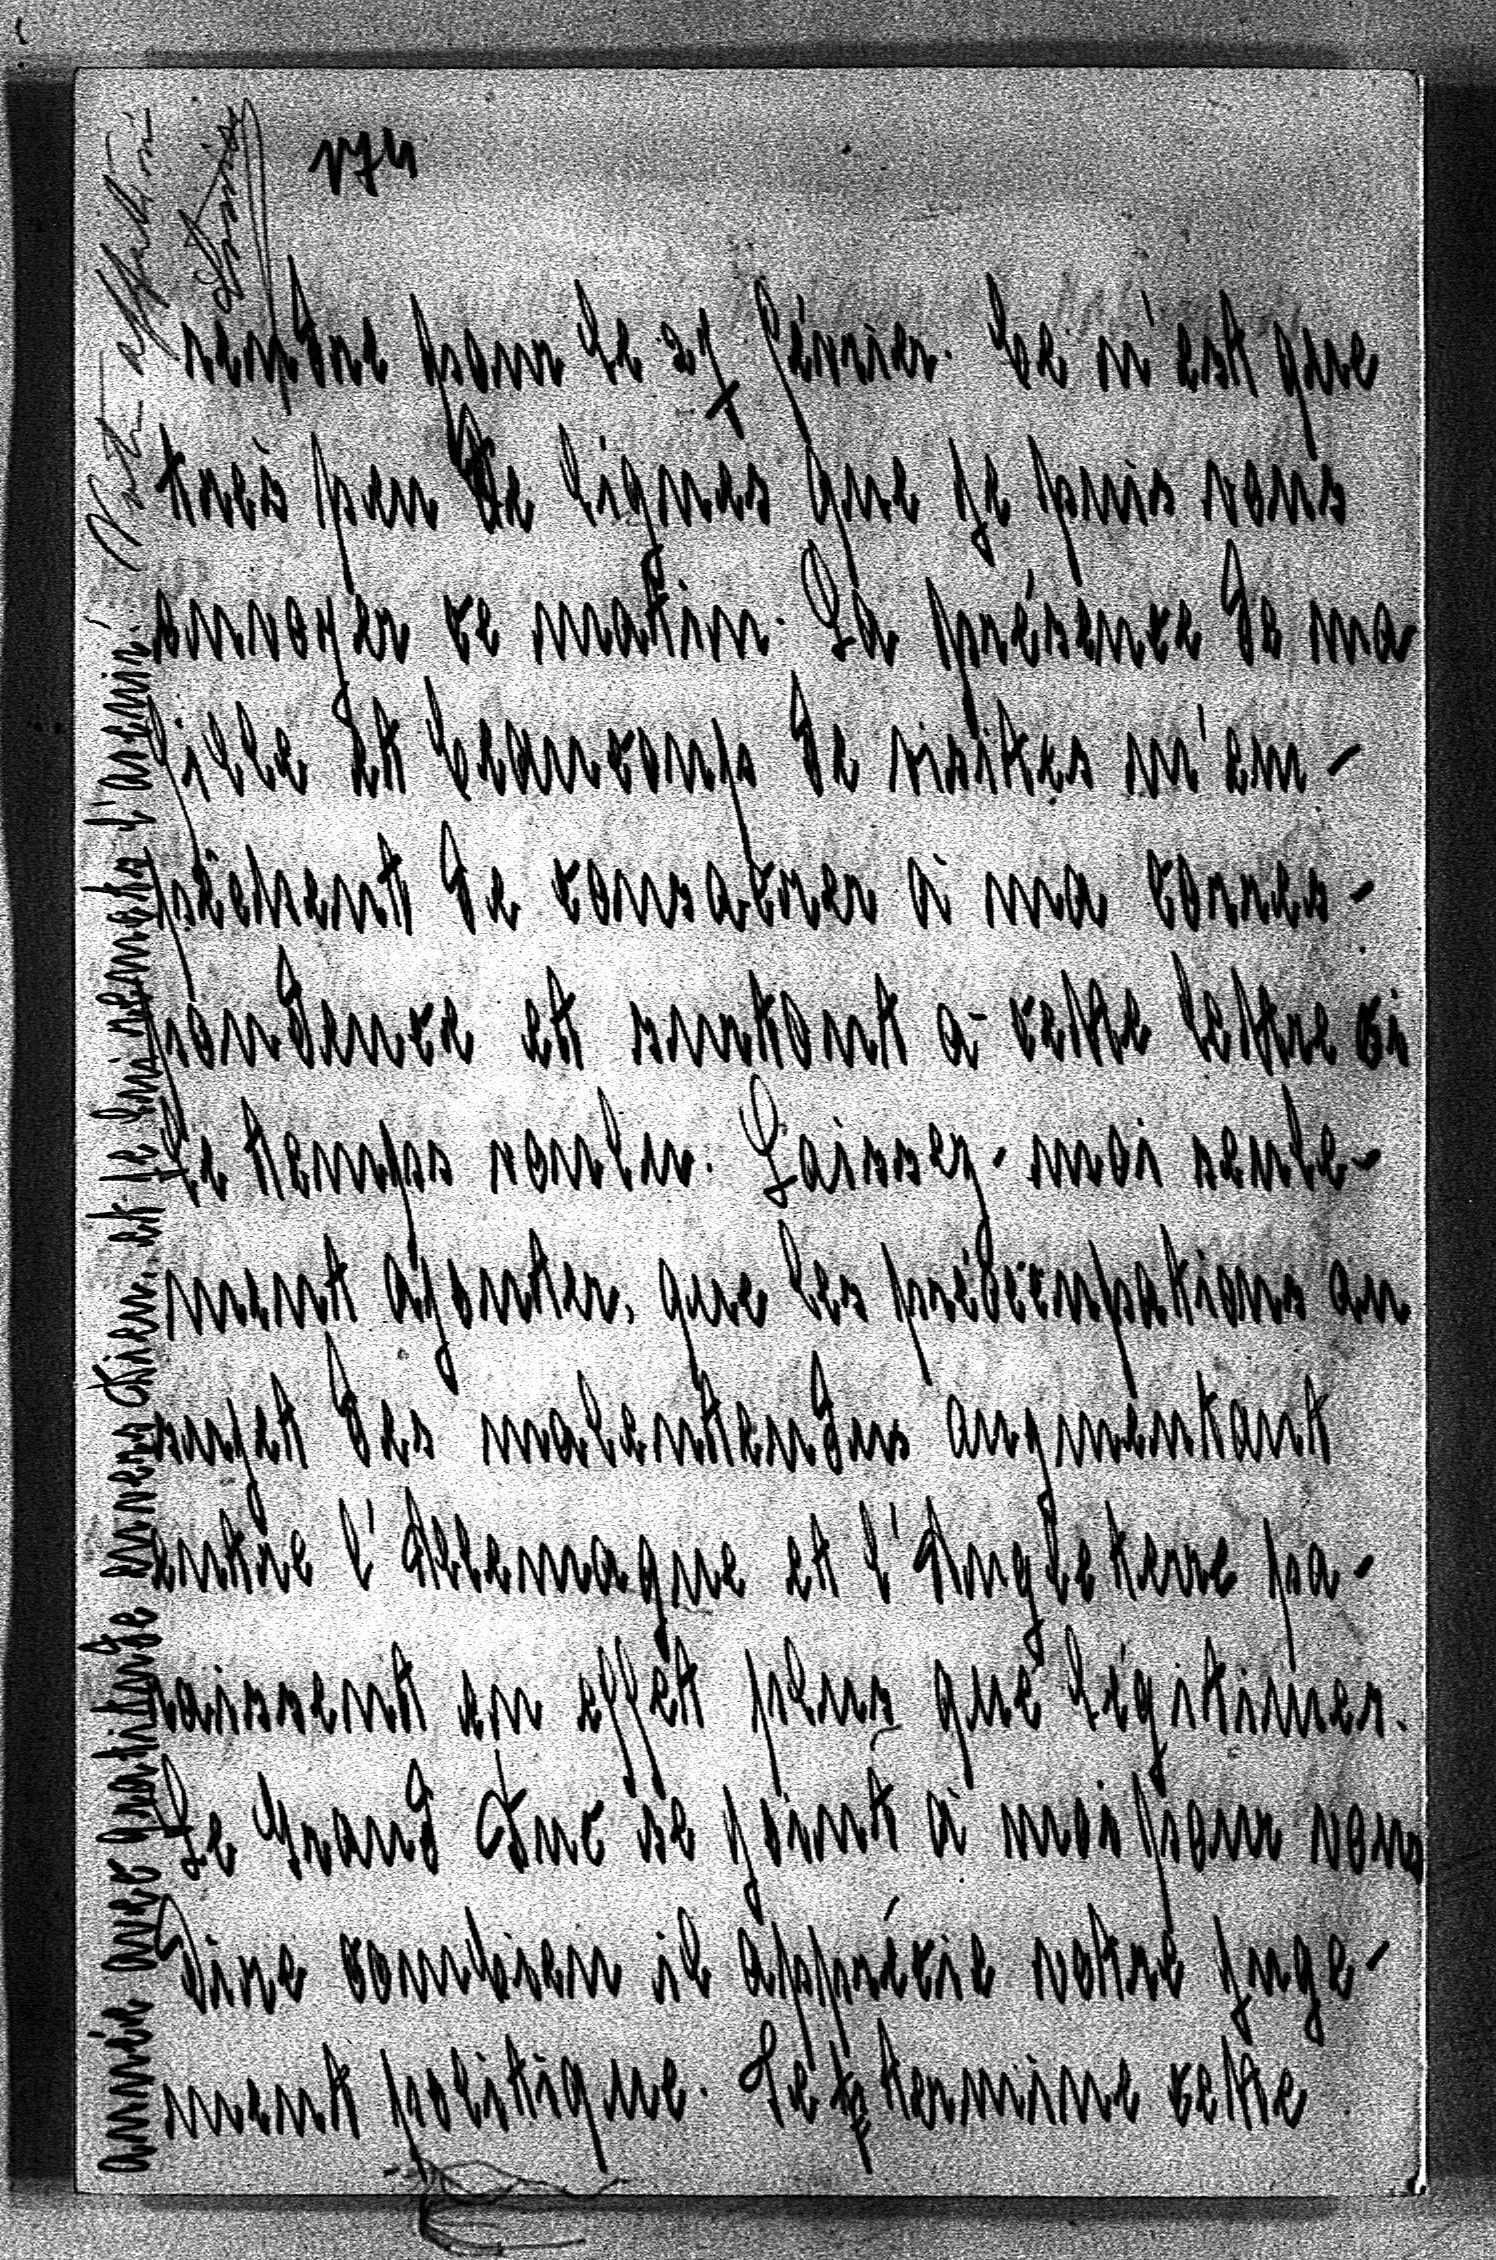 174
rendre pour le 27 février. Ce n'est que
très peu de lignes que je puis vous
envoyer ce matin. La présence de ma
fille et beaucoup de visites m'em-
pêchent de consacrer à ma corres-
pondance et surtout à cette lettre ci
le temps voulu. Laissez-moi seule-
ment ajouter, que les préoccupations au
sujet des malentendus augmentant
entre l'Allemagne et l'Angleterre pa-
raissent en effet plus que légitimes.
Le Grand Duc se joint à moi pour vous
dire combien il apprécie votre juge-
ment politique. Je termine cette
année avec gratitude envers Dieu, et je lui remets l'avenir. Votre affectionnée
Louise